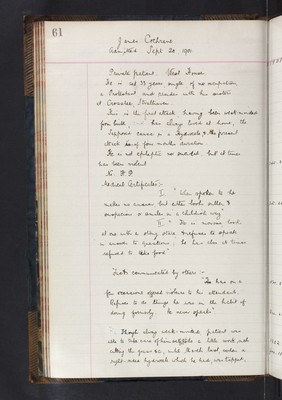 61
James Cochrane
Admitted Sept 20. 1901
Private patient, West House.
He is aet 33 years single of no occupation
a Protestant and resides with his mother
at Crossles,
This is the first attack having been weak minded
from birth, has always lived at home, the
supposed cause is a hydrocele & the present
attack is of four months duration
He is not epileptic nor suicidal, but at times
has been violent
Medical Certificates:-
I. "When spoken to he
makes no answer but either looks sullen &
or smiles in a childish way"
II. "He is morose looks
at one with a staring stare & refuses to speak
in answer to questions, he has also at times
refused to take food"
Facts communicated by others:-
He has on a
few occasions offered violence to his attendant.
Refuses to do things he was in the habit of
doing formerly. He never speaks"
Though always weak-minded, patient was
able to take care of himself & do a little work such as
cutting the grass &c, until March last, when a
right-sided hydrocele which he had, was tapped.